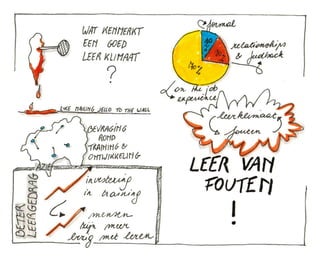 WAT KENMERKT
EEN GOED
LEERKLIMAAT
?
LIKE NAILING JELLO TO THE WALL
BEVRAGING
ROND
TRAINING &
ONTWIKKELING
BETER
LEERGEDRAG
investering
in training
mensen
zijn meer
bezig met leren
formal
relationships
& feedback
70%
on the job
experience
leerklimaat
fouten
LEER VAN
FOUTEN
!